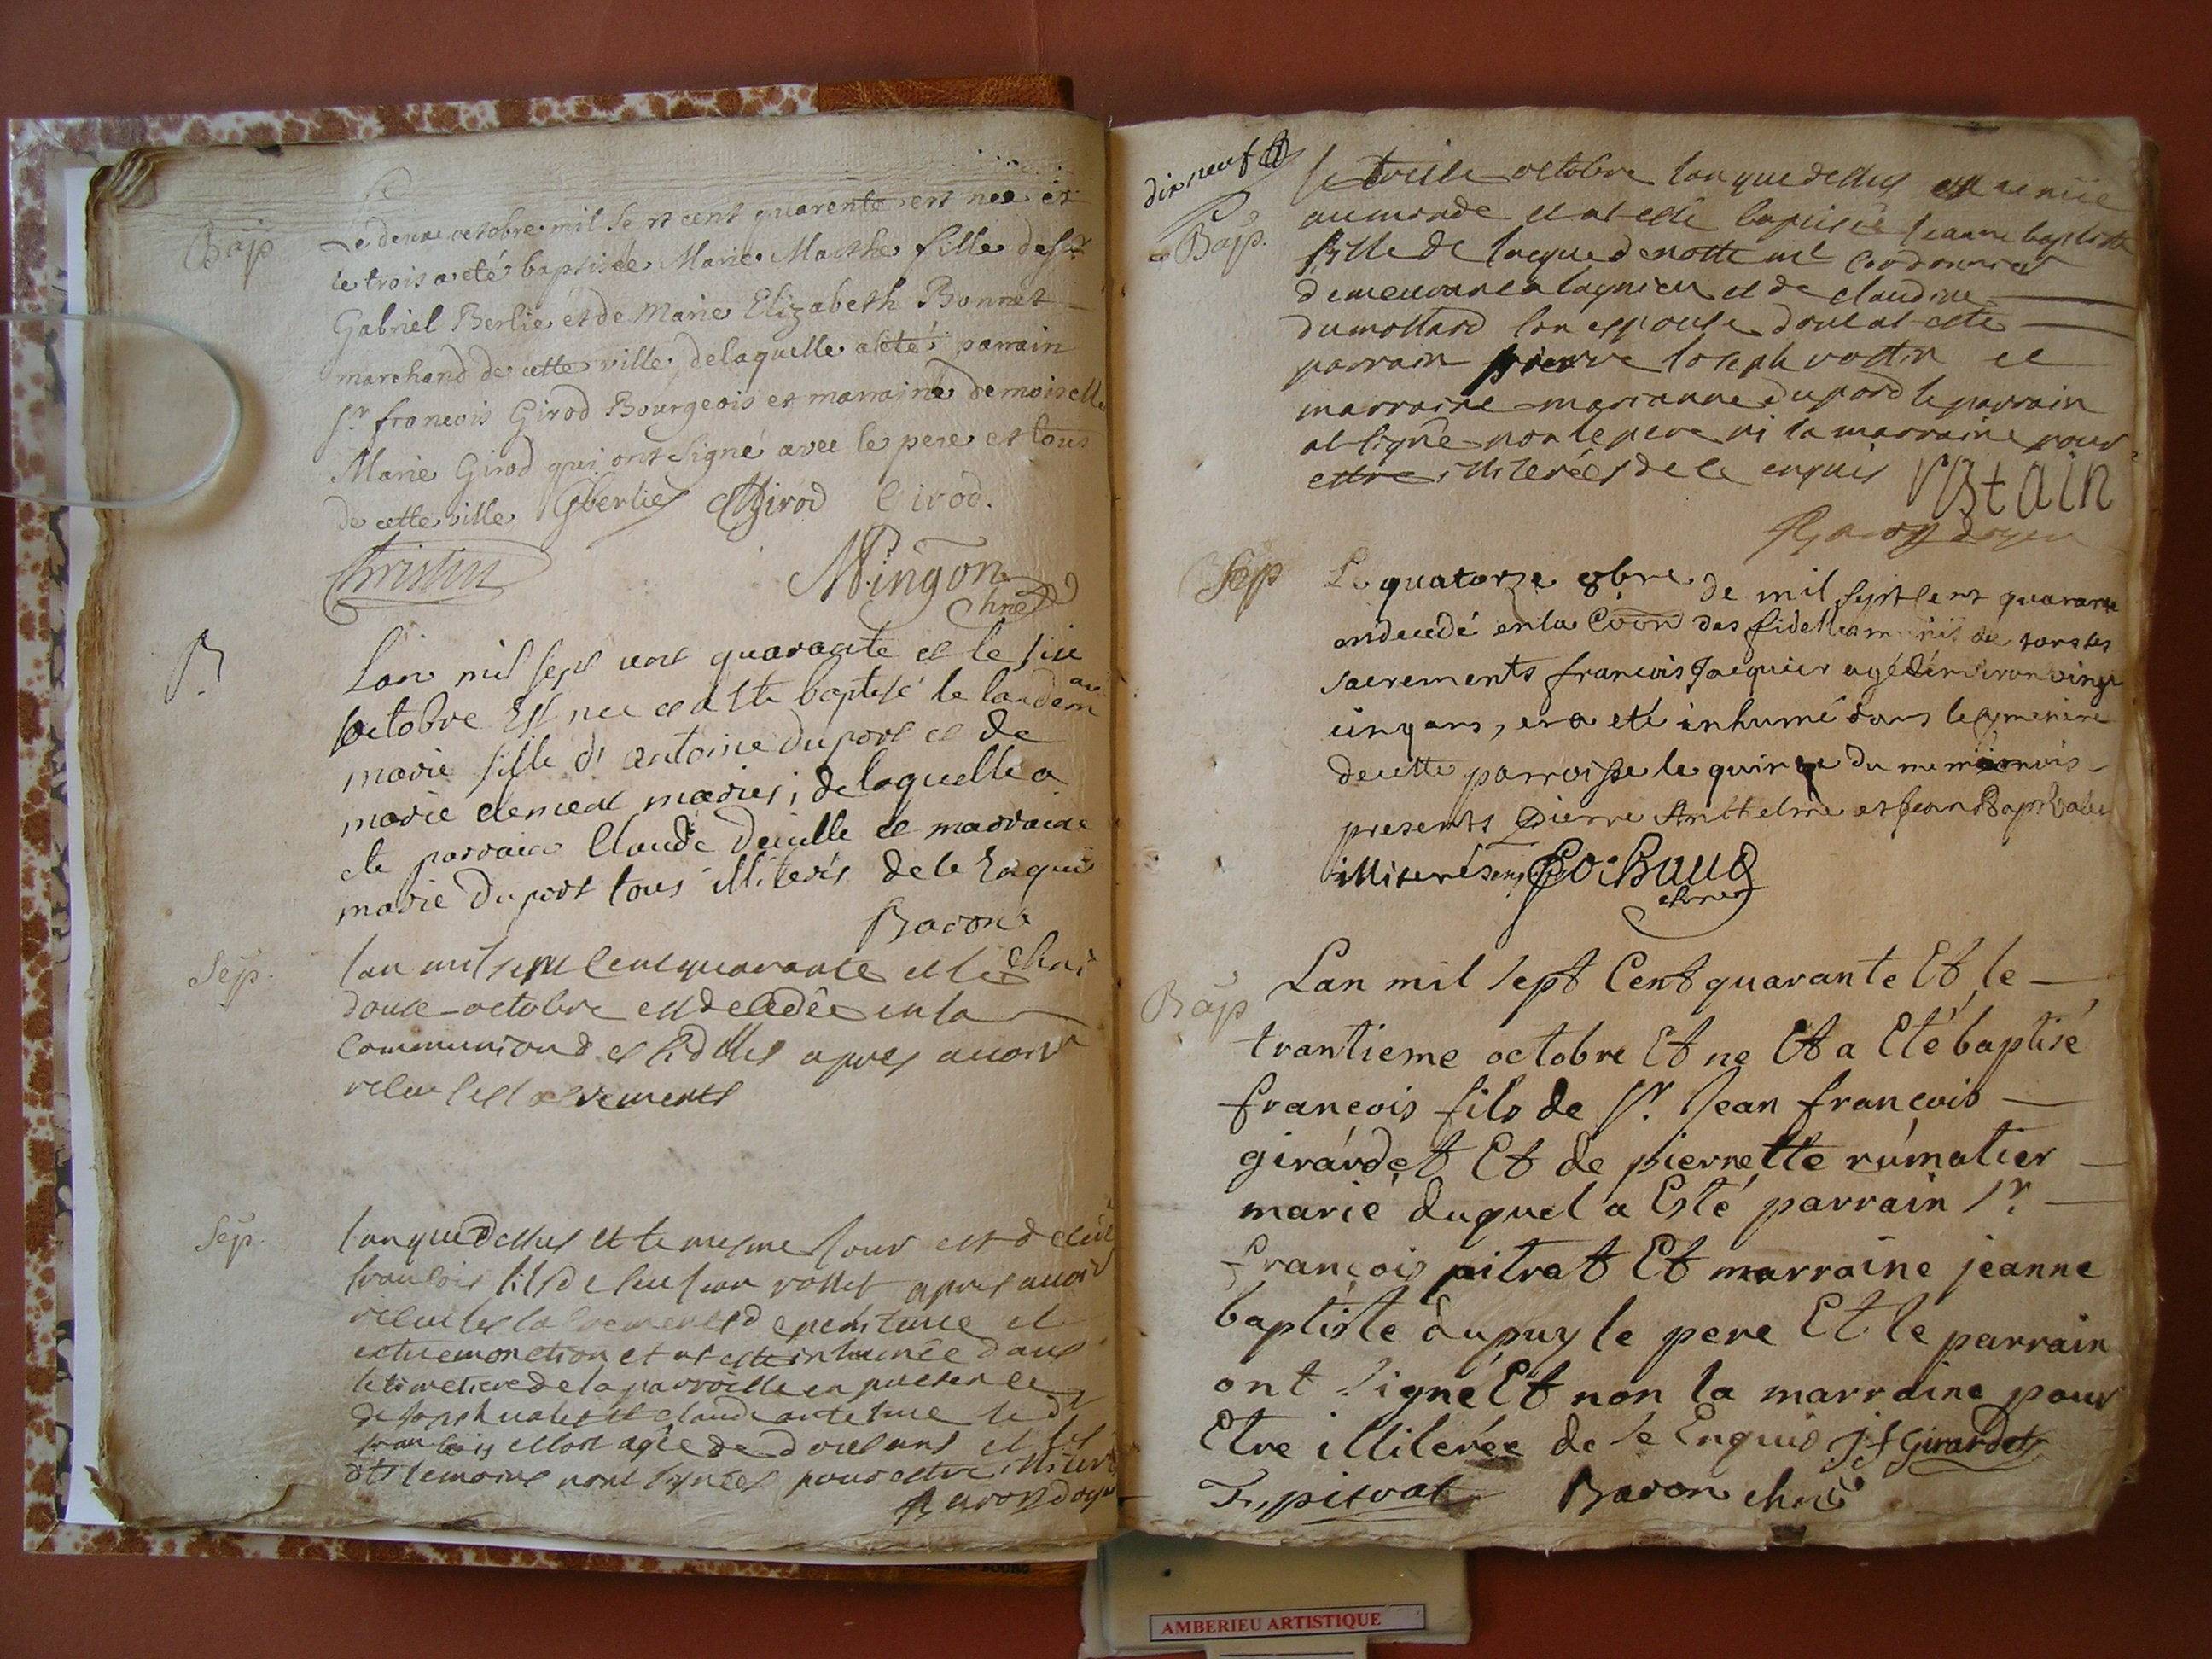 Bap
Le deuxe octobre mil sept cent quarente est née et
le trois a eté baptisée Marie Marthe fille de sr
Gabriel Berlie et de Marie Elizabeth Bonnet
marchand de cette ville, de laquelle a eté parrain
sr francois Girod Bourgeois et marraine demoiselle
Marie Girod qui ont signé avec le pere et tous
de cette ville Gberlie Girod Girod.
Christin Mingon
chne
B
Lan mil sept cent quarante et le six
octobre Est nee et a ete baptisé le landem
ain
marie fille d' antoine duport et de
marie clement mariés, de laquelle a
ete parrain Claude et marraine
marie duport tous illiterés de le Enquis
Baron
chne
Sep.
lan mil sept cent quarante et le
douse octobre est decedée en la
communion des fidelles apres auoir
receu les sacrements
Sep.
lan que dessus et le mesme jour est decedé
francois fils de feu jean rollet apres auoir
receu les sacrements de penitence et
extreme onction et at esté inhumée dans
le cimetiere de la parroisse en presence
de et claude antelme le dt
francois estant agée de ans et les
dts temoins nont signées pour estre illiterés
Baron doyen
dix neuf
Bap.
le treise octobre lan que dessus est venue
au monde et at esté baptisée jeanne baptiste
fille de jaque me Cordonnier
demeurant a lagnieu et de claudine
dumollard son espouse dont at esté
parrain pierre joseph et
marraine marianne duport le parrain
at signé non le pere ni la marraine pour
estre illiterées de ce enquis
Baron doyen
Sep
Le quatorze 8bre de mil sept cent quarante
est decedé en la Coon des fidelles muni de tous les
sacrements francois Jacquier agé denviron vingt
cinq ans, et a eté inhumé dans le cymetiere
de cette parroisse le quinze du meme mois
presents Pierre Anthelme et Jean Bapt
illiterés enquis
chne
Bap
Lan mil sept Cent quarante Et le
trantieme octobre Et ne Et a Eté baptisé
francois fils de sr. Jean francois
girardet Et de pierrette rumatier
marié duquel a Esté parrain sr.
francois pitrat Et marraine jeanne
baptiste dupuy le pere Et le parrain
ont signé Et non la marraine pour
Etre illiterée de ce Enquis jf Girardet
F. pitrat Baron chne
AMBERIEU ARTISTIQUE